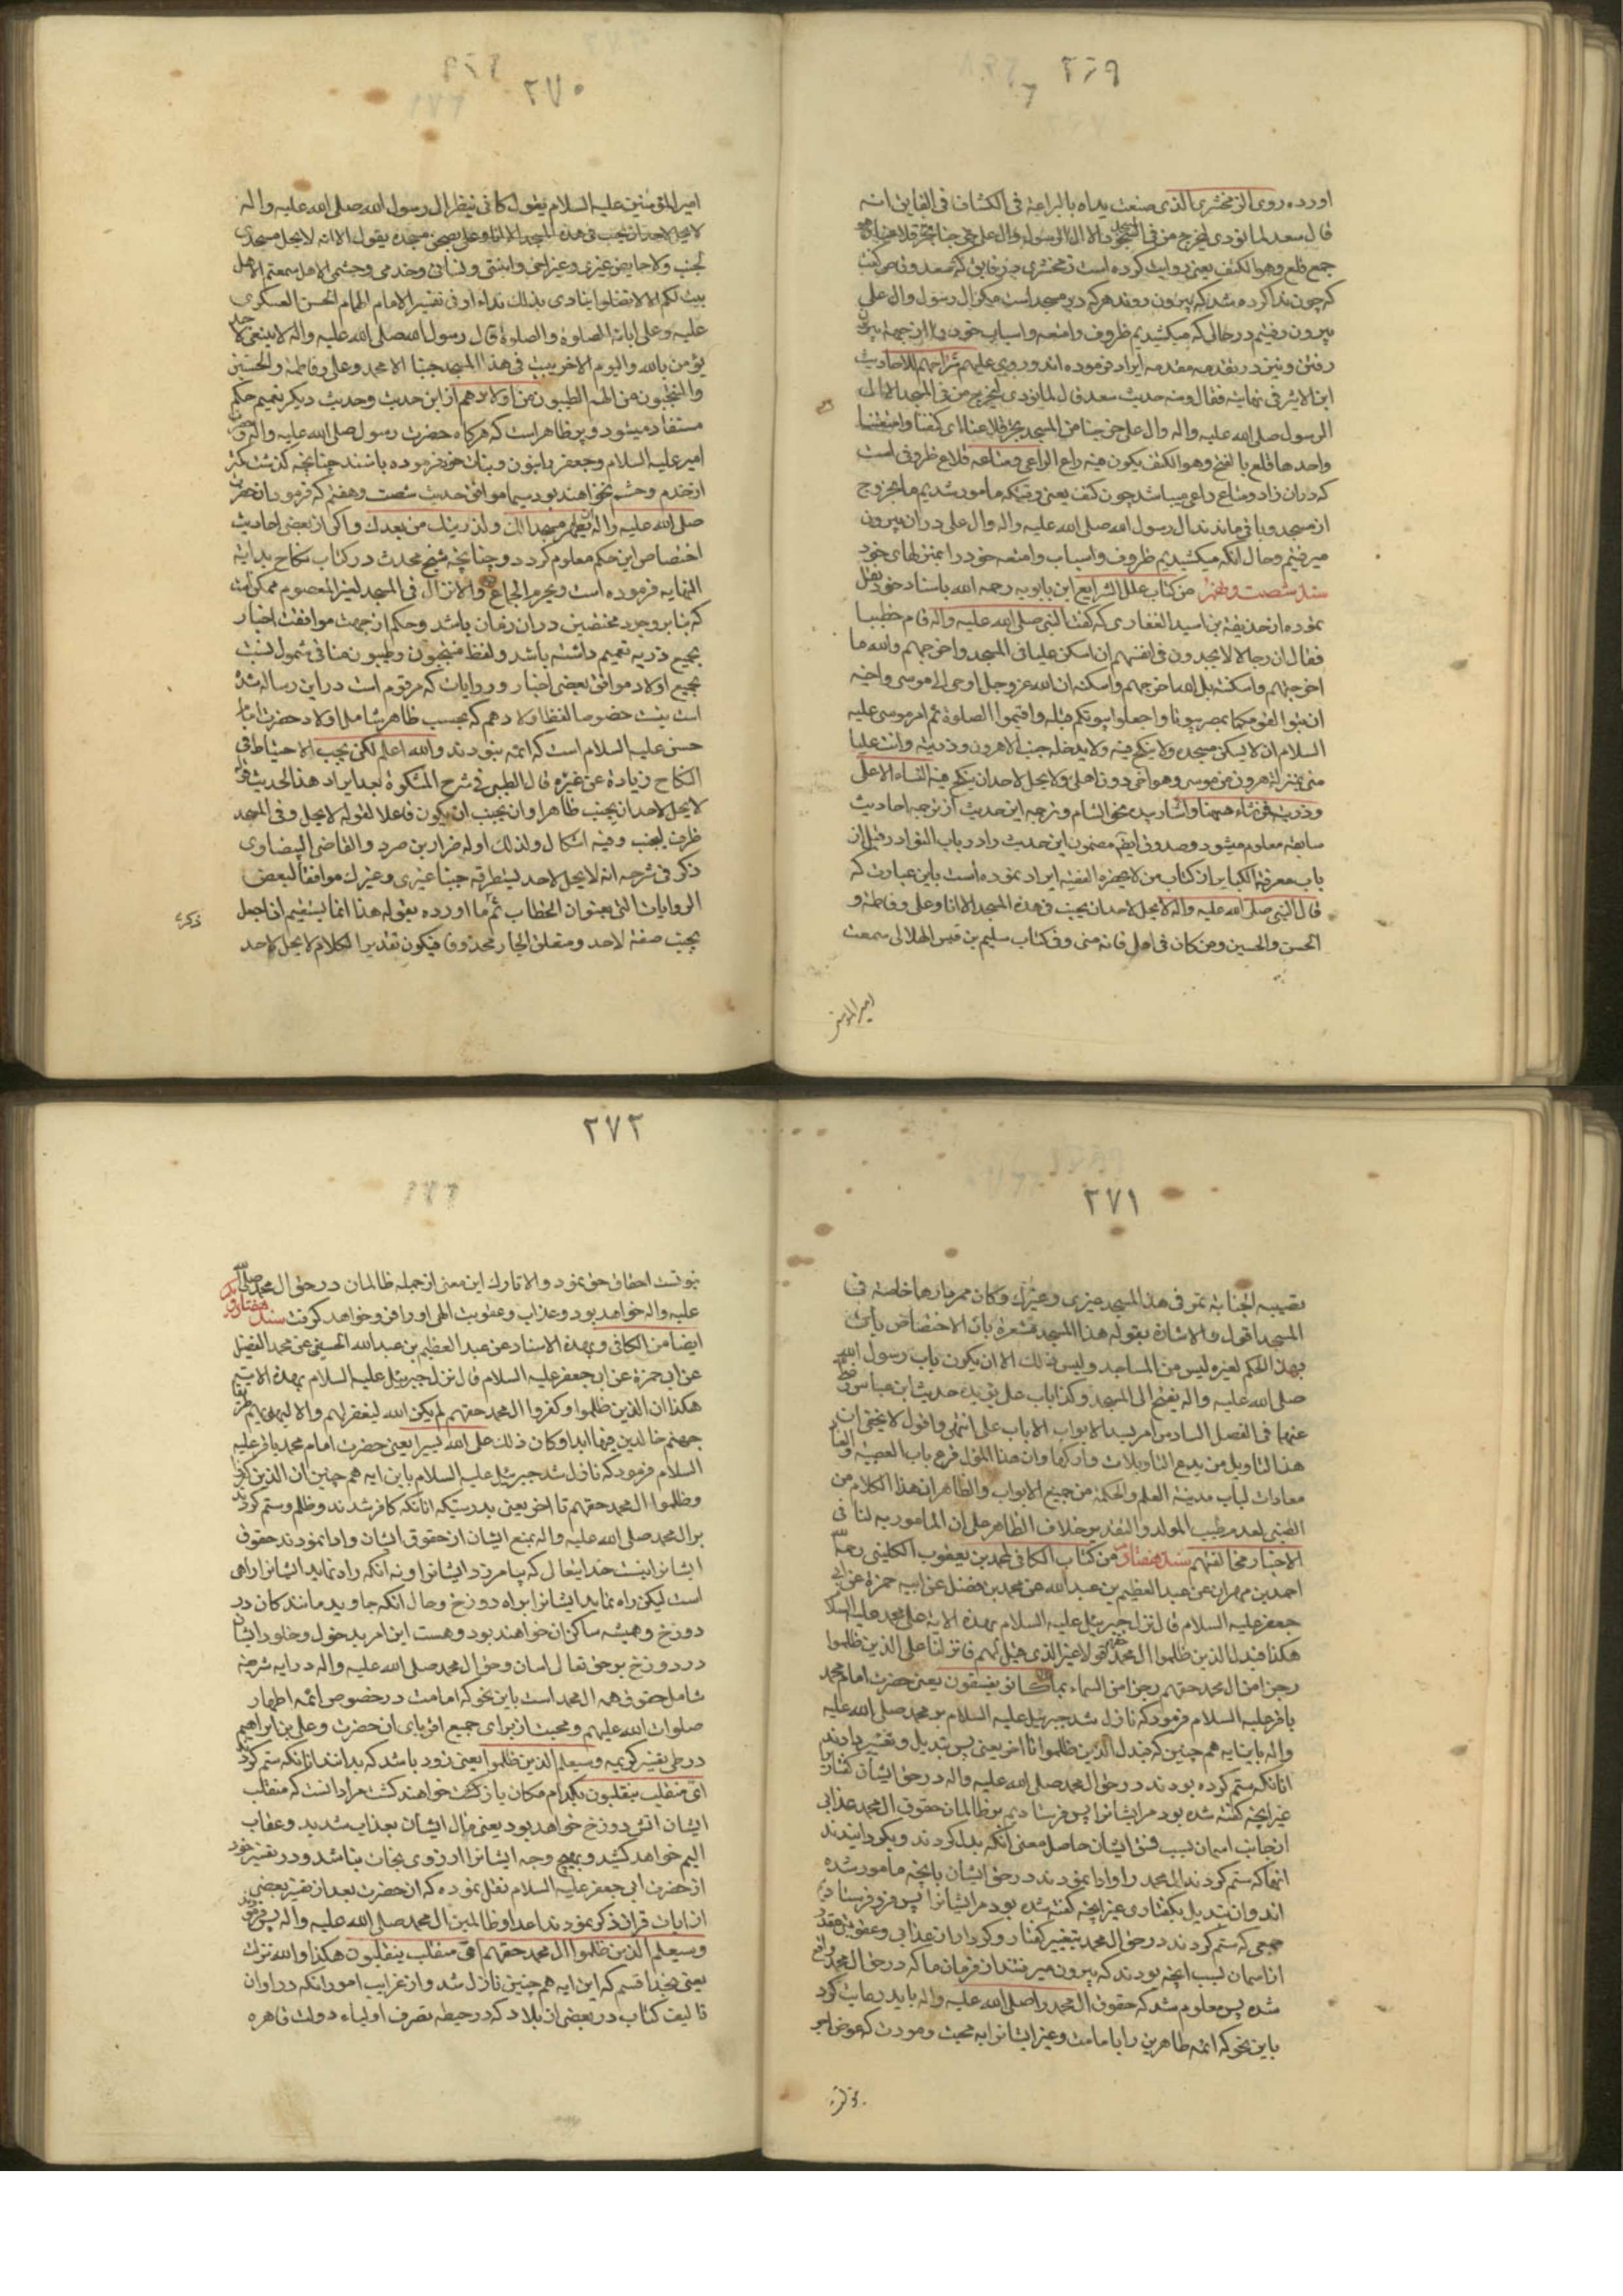 ٢٦٩
اورده روی الزمخشری الذی صنعت یداه بالبراعة فی الکشاف فی الفایق انه
قال سعد لما نودی لیخرج من فی المسجد الا ال الرسول وال علی خرجنا نجر قلاعنا هو
جمع قلع وهو الکنف یعنی روایت کرده است زمخشری در فایق که سعد وقاص گفت
که چون ندا کرده شد که بیرون روند هر که در مسجد است مگر ال رسول وال علی
بیرون رفتیم در حالی که میکشیدیم ظروف وامتعه واسباب خود را از جهة بیرون
رفتن
ابن الاثیر فی نهایته فقال ومنه حدیث سعد قال لما نودی لیخرج من فی المسجد الا ال
الرسول صلی الله علیه واله وال علی خرجنا من المسجد نجر قلاعنا ای کنفنا وامتعتنا
واحدها قلع بالفتح وهو الکنف یکون فیه زاد الراعی ومتاعه قلاع ظروفی است
که دران زاد ومتاع راعی میباشد چون کنف یعنی وقتیکه مامور شدیم ما بخروج
از مسجد وباقی ماندند ال رسول الله صلی الله علیه واله وال علی دران بیرون
میرفتیم وحال انکه میکشیدیم ظروف واسباب وامتعه خود را بمنزلهای خود
سند شصت ونهم از کتاب علل الشرایع ابن بابویه رحمه الله باسناد خود نقل
نموده از حذیفة بن اسید الغفاری که گفت ان النبی صلی الله علیه واله قام خطیبا
فقال ان رجالا لا یجدون فی انفسهم ان اسکن علیا فی المسجد واخرجهم والله ما
اخرجتهم واسکنته بل الله اخرجهم واسکنه ان الله عز وجل اوحی الی موسی واخیه
ان تبوءا لقومکما بمصر بیوتا واجعلوا بیوتکم قبلة واقیموا الصلوة ثم امر موسی علیه
السلام ان لا یسکن مسجده ولا ینکح فیه ولا یدخله جنب الا هرون وذریته وان علیا
منی بمنزلة هرون من موسی وهو اخی دون اهلی ولا یحل لاحد ان ینکح فیه النساء الا علی
وذریته فمن شاء فههنا واشار بیده نحو الشام وترجمه این حدیث از ترجمه احادیث
سابقه معلوم میشود وصدوق ایضا مضمون این حدیث را در باب النوادر قبل از
باب معرفة الکبایر از کتاب من لا یحضره الفقیه ایراد نموده است باین عبارت که
قال النبی صلی الله علیه واله لا یحل لاحد ان یجنب فی هذه المسجد الا انا وعلی وفاطمة و
الحسن والحسین ومن کان من اهلی فانه منی وفی کتاب سلیم بن قیس الهلالی سمعت
امیر المؤمنین
٢٧٠
امیر المؤمنین علیه السلام یقول کانی انظر الی رسول الله صلی الله علیه واله
لا یحل لاحد ان یجنب فی هذه المسجد الا انا وعلی یقول الا انه لا یحل مسجدی
لجنب ولا حایض غیری وغیر اخی وابنتی ونسائی وخدمی وحشمی الا هل سمعتم الا هل
بینت لکم الا لا تضلوا ینادی بذلک نداء او فی تفسیر الامام الهمام الحسن العسکری
علیه وعلی ابائه الصلوة والصلوة قال رسول الله صلی الله علیه واله لا ینبغی لاحد
یؤمن بالله والیوم الاخر یبیت فی هذا المسجد جنبا الا محمد وعلی وفاطمة والحسنین
والمنتجبون من الهم الطیبون من اولادهم از این حدیث وحدیث دیگر تعمیم حکم
مستفاد میشود وپر ظاهر است که هرگاه حضرت رسول صلی الله علیه واله وحضرت
امیر علیه السلام وجعفر را بنون وبنات خود فرموده باشند چنانچه گذشت
از خدم وحشم نخواهند بود سیما موافق حدیث شصت وهفتم که فرمود ان حضرت
صلی الله علیه واله یطهر مسجدا لک ولذریتک من بعدک واگر از بعضی احادیث
اختصاص این حکم معلوم گردد وچنانچه شیخ محدث در کتاب نکاح بدایة
النهایه فرموده است ویحرم الجماع والانزال فی المسجد لغیر المعصوم ممکن است
که بنا بر وجود مختصین دران زمان باشد وحکم از جهت موافقت اخبار
بجمیع ذریه تعمیم داشته باشد ولفظ منتجبون وطیبون منافی شمول نیست
بجمیع اولاد موافق بعضی اخبار وروایات که مرقوم است در این رساله شده
است نیست خصوصا لفظ اولادهم که بحسب ظاهر شامل اولاد حضرت امام
حسن علیه السلام است که ائمه نبودند والله اعلم لکن یجب الاحتیاط فی
النکاح زیادة عن غیره قال الطیبی فی شرح المشکوة بعد ایراد هذا الحدیث
لا یحل لاحد ان یجنب ظاهر او ان یجنب ان یکون فاعلا لقوله لا یحل وفی المسجد
ظرف لیجنب وفیه اشکال ولذلک اوله ضرار بن صرد والقاضی البیضاوی
ذکر فی شرحه انه لا یحل لاحد یستطرقه جنبا غیری وغیرک موافقا لبعض
الروایات التی بعنوان الخطاب ثم ما اورده بقوله هذا انما یستقیم اذا جعل
یجنب صفة لاحد ومتعلق الجار محذوفا فیکون تقدیر الکلام لا یحل لاحد
٢٧١
تصیبه الجنابة یمر فی هذا المسجد غیری وغیرک وکان ممر بابهما خاصة فی
المسجد اقول والاشارة بقوله هذا المسجد مشعرة بان الاختصاص
بهذا الحکم لغیره لیس من المساجد ولیس ذلک الا ان یکون باب رسول الله
صلی الله علیه واله یفتح الی المسجد وکذا باب علی یؤیده حدیث ابن عباس رضی
عنهما فی الفصل السادس امر بسد الابواب الا باب علی انتهی واقول لا یخفی ان
هذا التاویل من بدیع التاویلات وارکها وان هذا القول فرع باب العصبیة
معادات لباب مدینة العلم والحکمة من جمیع الابواب والظاهر ان هذا الکلام من
الاخبار مخالفتهم سند هفتاد از کتاب الکافی لمحمد بن یعقوب الکلینی رحمه الله
احمد بن مهران عن عبد العظیم بن عبد الله عن محمد بن فضیل عن ابی حمزة عن ابی
جعفر علیه السلام قال نزل جبرئیل علیه السلام بهذه الایة علی محمد علیه السلام
هکذا فبدل الذین ظلموا ال محمد حقهم قولا غیر الذی قیل لهم فانزلنا علی الذین ظلموا
ال محمد حقهم رجزا من السماء بما کانوا یفسقون یعنی حضرت امام محمد
باقر علیه السلام فرمود که نازل شد جبرئیل علیه السلام بر محمد صلی الله علیه
واله باین ایه هم چنین که فبدل الذین ظلموا تا اخر یعنی پس تبدیل وتغییر دادند
انانکه ستم کرده بودند در حق ال محمد صلی الله علیه واله در حق ایشان گفتار
غیر انچه گفته شده بود مر ایشانرا پس فرستادیم بر ظالمان حقوق ال محمد عذابی
از جانب اسمان بسبب فسق ایشان حاصل معنی انکه بدل کردند وبگردانیدند
انها که ستم کردند ال محمد را وادا ننمودند در حق ایشان بانچه مامور شده
اند وان تبدیل بگفتاری غیر انچه گفته شده بود مر ایشانرا پس فرو فرستادیم
جمعی که ستم کردند در حق ال محمد بتغییر گفتار وکردار ان عذابی وعقوبتی
از اسمان بسبب انچه بودند که بیرون میرفتند از فرمان ما که در حق ال محمد واقع
شده پس معلوم شد که حقوق ال محمد را صلی الله علیه واله باید رعایت کرد
باین نحو که ائمه طاهرین را بامامت وغیر ایشانرا به محبت ومودت که عوض اجر
٢٧٢
نبوتست احقاق حق نمود والا تارک این معنی از جمله ظالمان در حق ال محمد صلی الله
علیه واله خواهد بود وعذاب وعقوبت الهی او را فرو خواهد گرفت سند هفتاد ویکم
ایضا من الکافی وبهذه الاسناد عن عبد العظیم بن عبد الله الحسنی عن محمد الفضیل
عن ابی حمزة عن ابی جعفر علیه السلام قال نزل جبرئیل علیه السلام بهذه الایة
هکذا ان الذین ظلموا وکفروا ال محمد حقهم لم یکن الله لیغفر لهم ولا لیهدیهم طریقا
جهنم خالدین فیها ابدا وکان ذلک علی الله یسیرا یعنی حضرت امام محمد باقر علیه
السلام فرمود که نازل شد جبرئیل علیه السلام باین ایه هم چنین ان الذین کفروا
وظلموا ال محمد حقهم تا اخر یعنی بدرستیکه انانکه کافر شدند وظلم وستم کردند
بر ال محمد صلی الله علیه واله بمنع ایشان از حقوق ایشان وادا ننمودند حقوق
ایشانرا نیست خدایتعالی که بیامرزد ایشانرا ونه انکه راه نماید ایشانرا راهی
است لیکن راه نماید ایشانرا براه دوزخ وحال انکه جاوید مانند کان در
دوزخ وهمیشه ساکن ان خواهند بود وهست این امر بدخول وخلود ایشان
در دوزخ بر حق تعالی اسان وحق ال محمد صلی الله علیه واله در ایه شریفه
شامل حقوق همه ال محمد است باین نحو که امامت در خصوص ائمه اطهار
صلوات الله علیهم ومحبت از برای جمیع اقربای ان حضرت وعلی بن ابراهیم
در طی تفسیر کریمه وسیعلم الذین ظلموا یعنی زود باشد که بدانند انانکه ستم کردند
ای منقلب ینقلبون بکدام مکان بازگشت خواهند گشت مراد انست که منقلب
ایشان اتش دوزخ خواهد بود یعنی مال ایشان بعذاب شدید وعقاب
الیم خواهد کشید وبهیچ وجه ایشانرا ارزوی نجات نباشد ودر تفسیر خود
از حضرت ابی جعفر علیه السلام نقل نموده که ان حضرت بعد از تفسیر بعضی
از ایات قران ذکر نمودند اعدا وظالمین ال محمد صلی الله علیه واله پس فرمود
وسیعلم الذین ظلموا ال محمد حقهم ای منقلب ینقلبون هکذا والله نزلت
یعنی بخدا قسم که این ایه هم چنین نازل شد واز غرایب امور انکه در اوان
تالیف کتاب در بعضی از بلاد که در حیطه تصرف اولیاء دولت قاهره